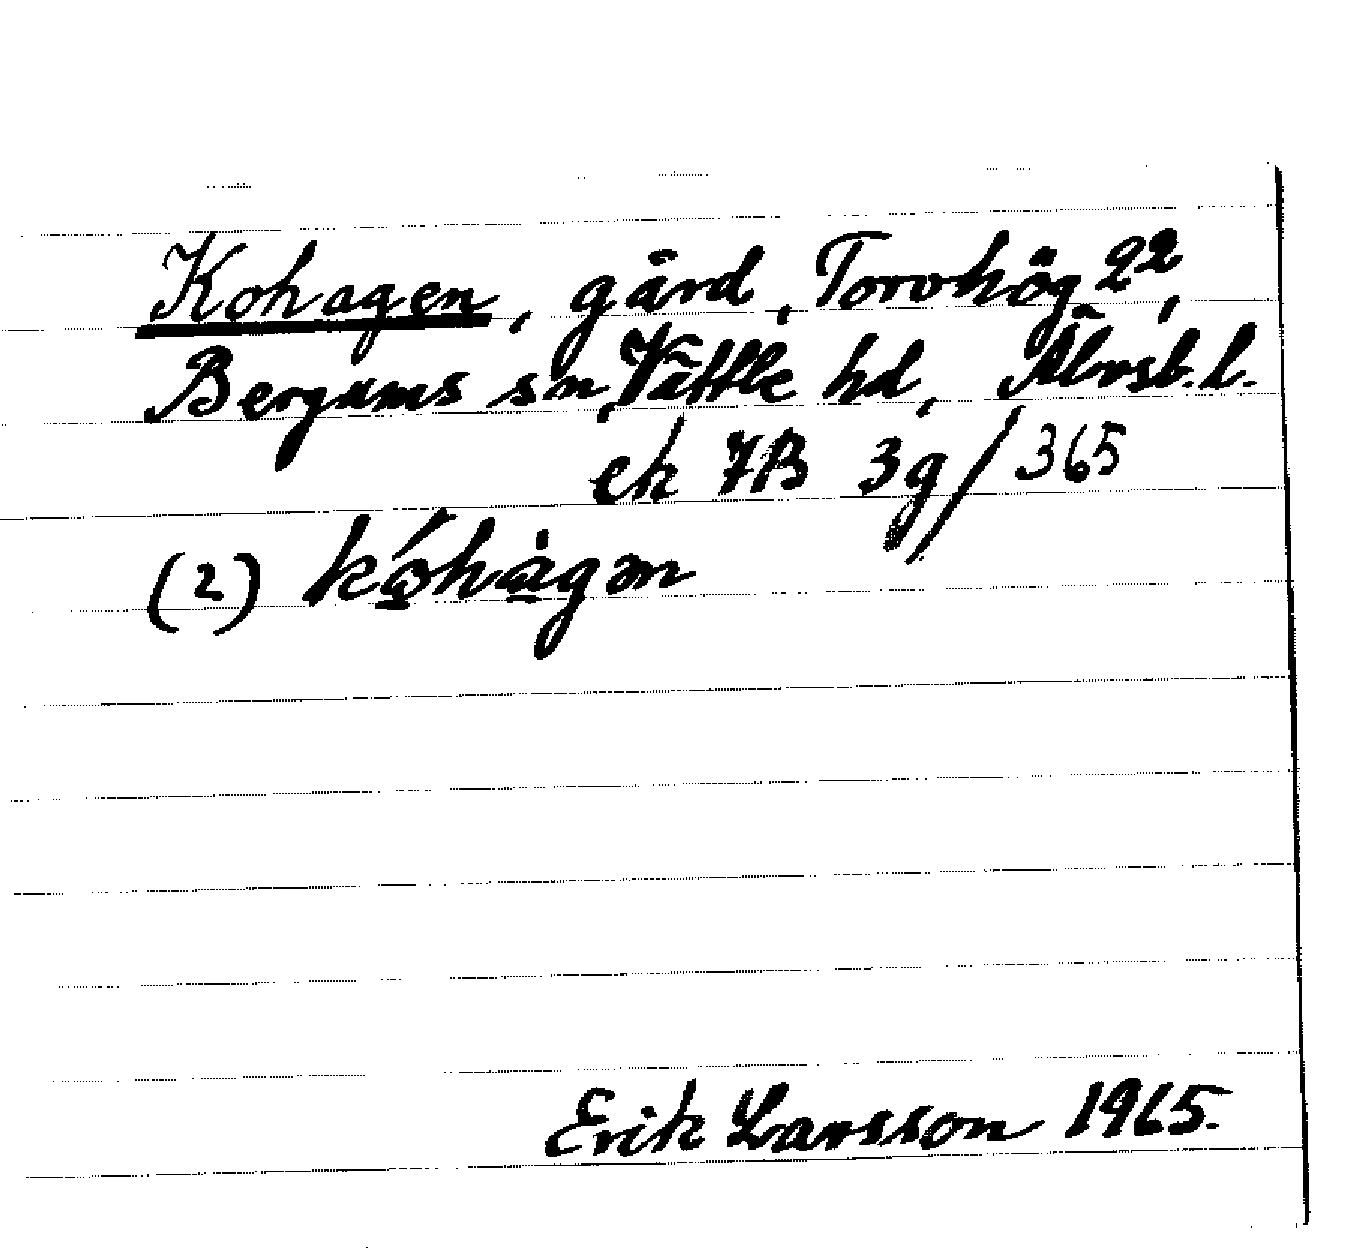 Kohagen, gård, Torvhög 2²,
Bergums sn, Vättle hd, Älvsb. l.
ek 7B 3g/365
(2) kǫ́hà̱gən
Erik Larsson 1965.